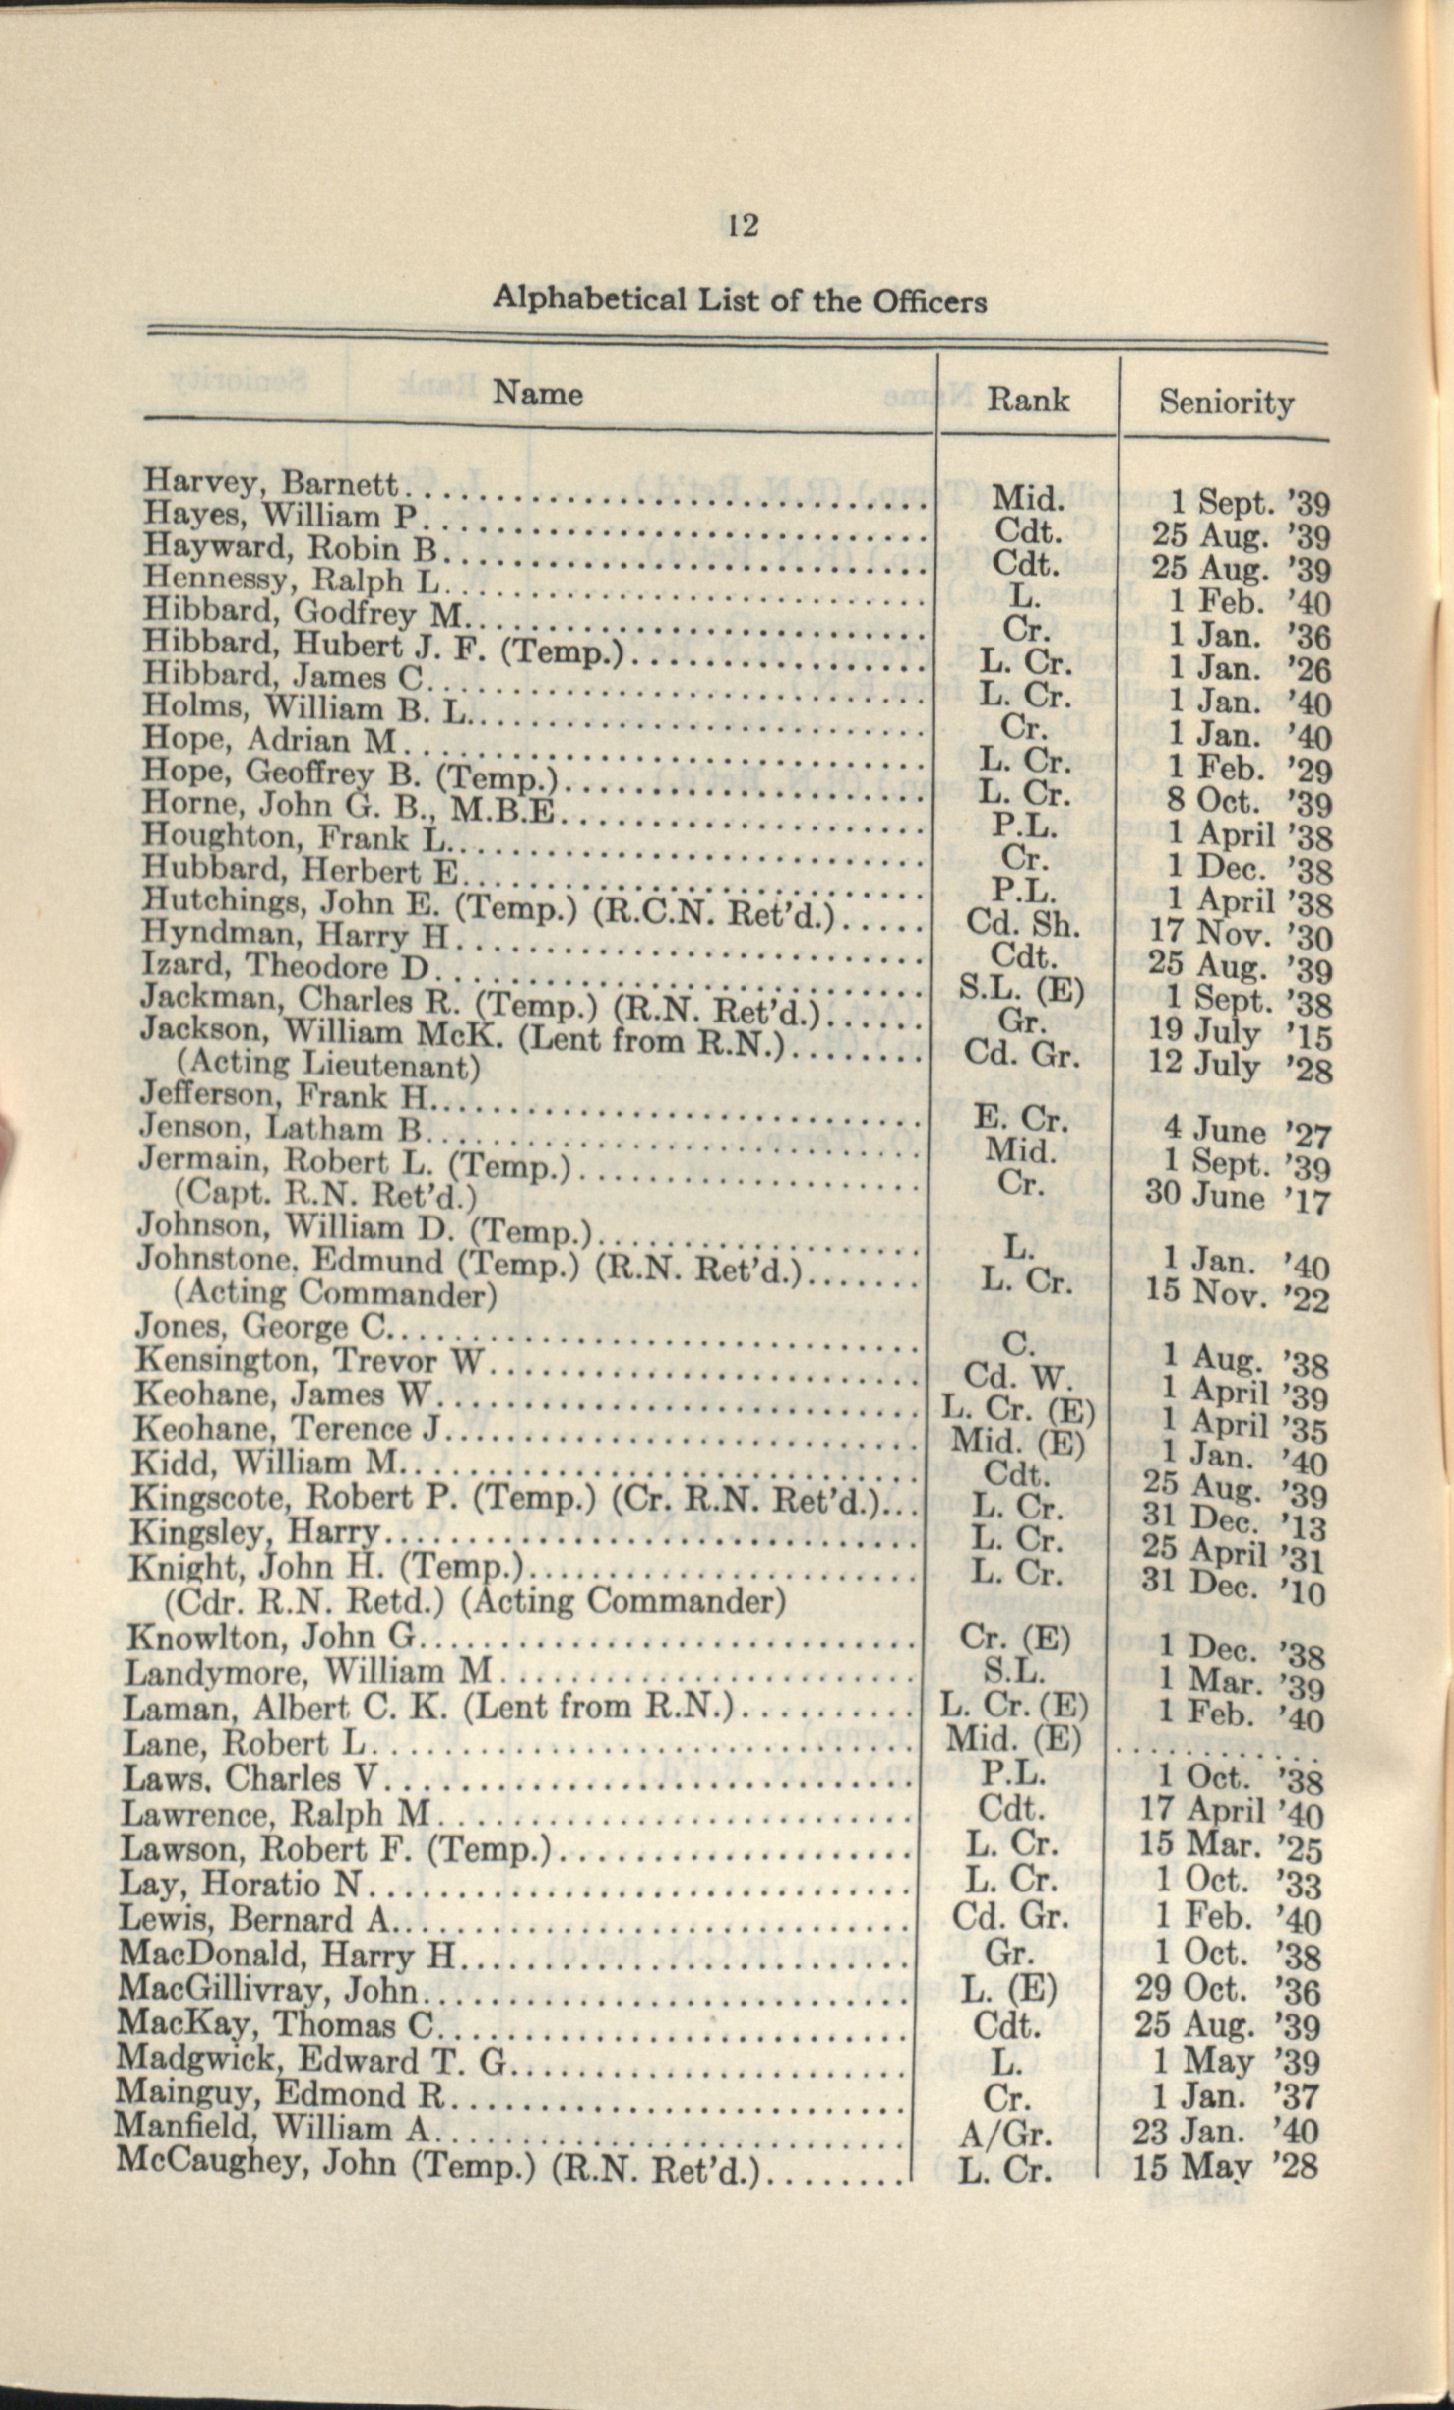 12
Alphabetical List of the Officers
Name Rank Seniority
Harvey, Barnett Mid. 1 Sept. '39
Hayes, William P. Cdt. 25 Aug. '39
Hayward, Robin B. Cdt. 25 Aug. '39
Hennessy, Ralph L. L. 1 Feb. '40
Hibbard, Godfrey M. Cr. 1 Jan. '36
Hibbard, Hubert J. F. (Temp.) L. Cr. 1 Jan. '26
Hibbard, James C. L. Cr. 1 Jan. '40
Holms, William B. L. Cr. 1 Jan. '40
Hope, Adrian M. L. Cr. 1 Feb. '29
Hope, Geoffrey B. (Temp.) L. Cr. 8 Oct. '39
Horne, John G. B., M.B.E. P.L. 1 April '38
Houghton, Frank L. Cr. 1 Dec. '38
Hubbard, Herbert E. P.L. 1 April '38
Hutchings, John E. (Temp.) (R.C.N. Ret'd.) Cd. Sh. 17 Nov. '30
Hyndman, Harry H. Cdt. 25 Aug. '39
Izard, Theodore D. S.L. (E) 1 Sept. '38
Jackman, Charles R. (Temp.) (R.N. Ret'd.) Gr. 19 July '15
Jackson, William McK. (Lent from R.N.) Cd. Gr. 12 July '28
(Acting Lieutenant)
Jefferson, Frank H. E. Cr. 4 June '27
Jenson, Latham B. Mid. 1 Sept. '39
Jermain, Robert L. (Temp.) Cr. 30 June '17
(Capt. R.N. Ret'd.)
Johnson, William D. (Temp.) L. 1 Jan. '40
Johnstone, Edmund (Temp.) (R.N. Ret'd.) L. Cr. 15 Nov. '22
(Acting Commander)
Jones, George C. C. 1 Aug. '38
Kensington, Trevor W. Cd. W. 1 April '39
Keohane, James W. L. Cr. (E) 1 April '35
Keohane, Terence J. Mid. (E) 1 Jan. '40
Kidd, William M. Cdt. 25 Aug. '39
Kingscote, Robert P. (Temp.) (Cr. R.N. Ret'd.) L. Cr. 31 Dec. '13
Kingsley, Harry L. Cr. 25 April '31
Knight, John H. (Temp.) L. Cr. 31 Dec. '10
(Cdr. R.N. Retd.) (Acting Commander)
Knowlton, John G. Cr. (E) 1 Dec. '38
Landymore, William M. S.L. 1 Mar. '39
Laman, Albert C. K. (Lent from R.N.) L. Cr. (E) 1 Feb. '40
Lane, Robert L. Mid. (E) ............
Laws, Charles V. P.L. 1 Oct. '38
Lawrence, Ralph M. Cdt. 17 April '40
Lawson, Robert F. (Temp.) L. Cr. 15 Mar. '25
Lay, Horatio N. L. Cr. 1 Oct. '33
Lewis, Bernard A. Cd. Gr. 1 Feb. '40
MacDonald, Harry H. Gr. 1 Oct. '38
MacGillivray, John L. (E) 29 Oct. '36
MacKay, Thomas C. Cdt. 25 Aug. '39
Madgwick, Edward T. G. L. 1 May '39
Mainguy, Edmond R. Cr. 1 Jan. '37
Manfield, William A. A/Gr. 23 Jan. '40
McCaughey, John (Temp.) (R.N. Ret'd.) L. Cr. 15 May '28